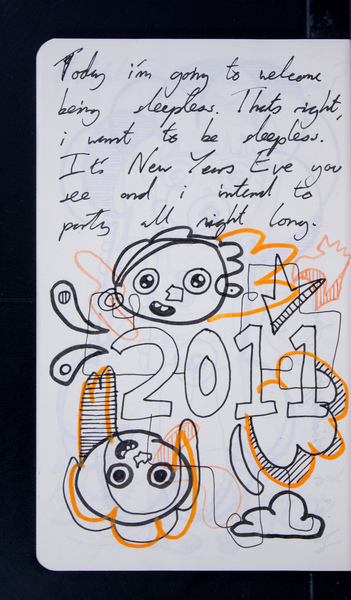 Today i'm going to welcome
being sleepless. Thats right,
i want to be sleepless.
It's New Years Eve you
see and i intend to
party all night long.
2011